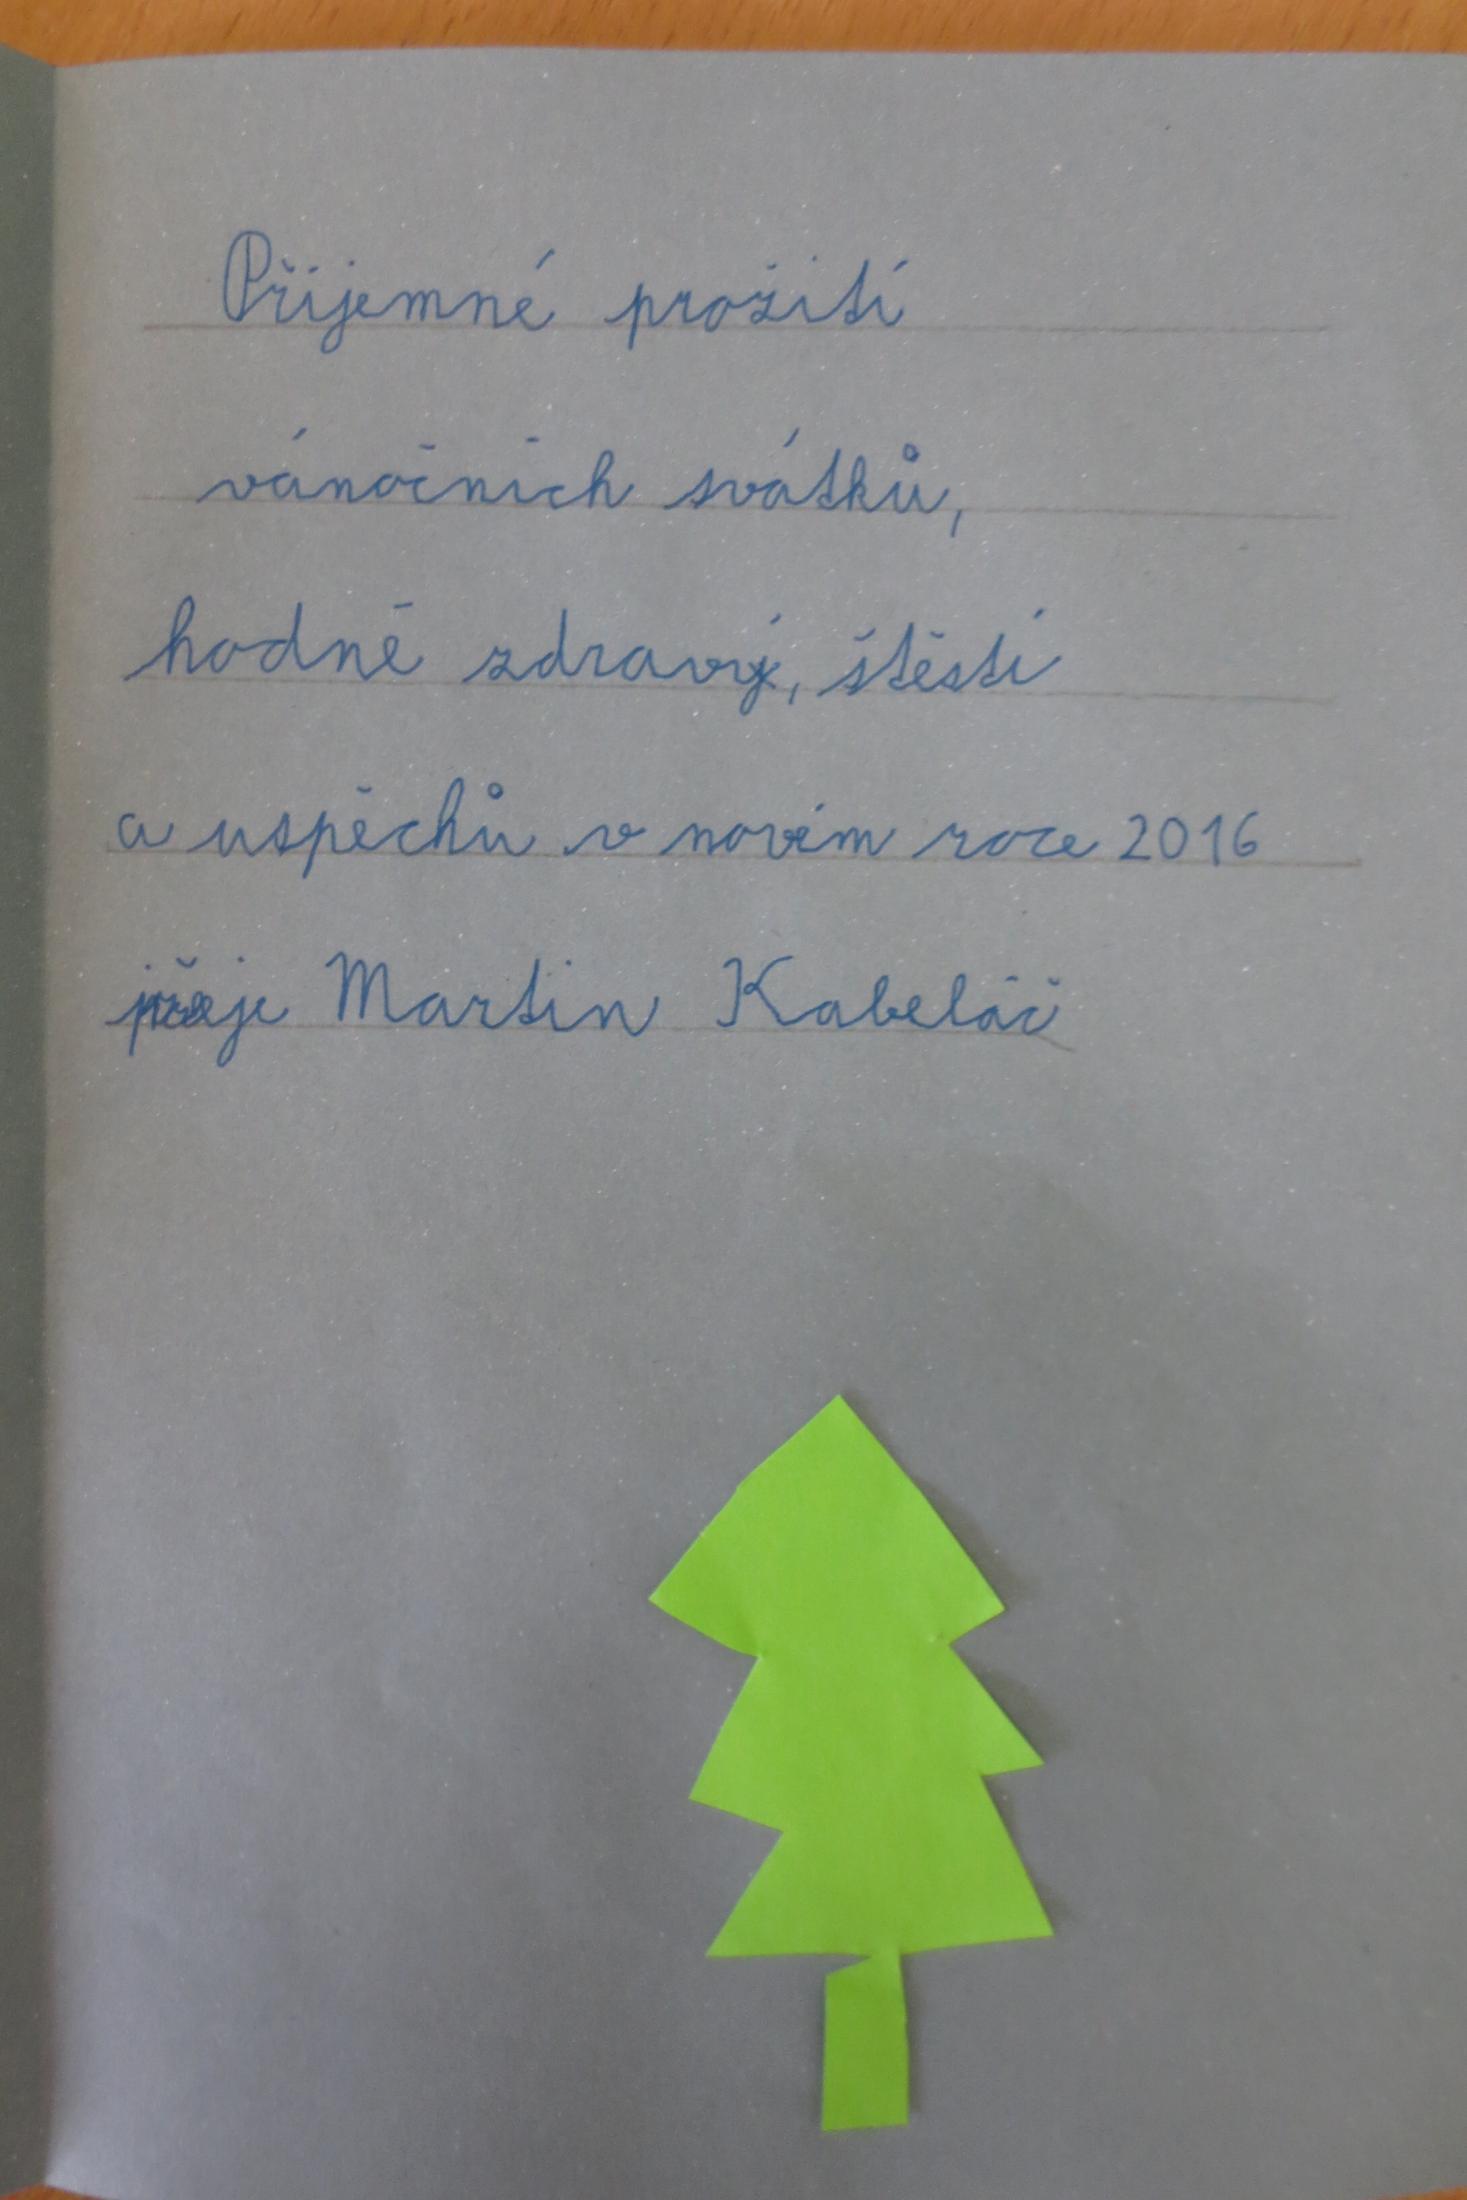 Přijemné prožití
vánočnich svátků,
hodně zdravý, štěstí
a uspěchů v novém roce 2016
přeje Martin Kabeláč